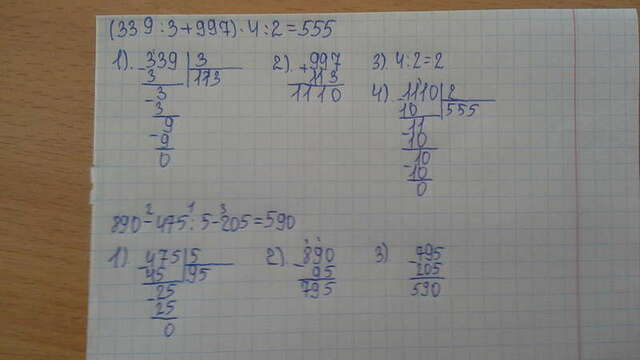 (339:3+997)·4:2=555
1) 339 | 3   2) 997   3) 4:2=2
- 3 | 113   + 113   4) 1110 | 2
- 3   1110   - 10 | 555
3   - 11
- 9   10
9   - 10
0   10
0
2 1 3
890-475:5-205=590
1) 475 | 5   2) 890   3) 795
- 45 | 95   - 95   - 205
- 25   795   590
25
0